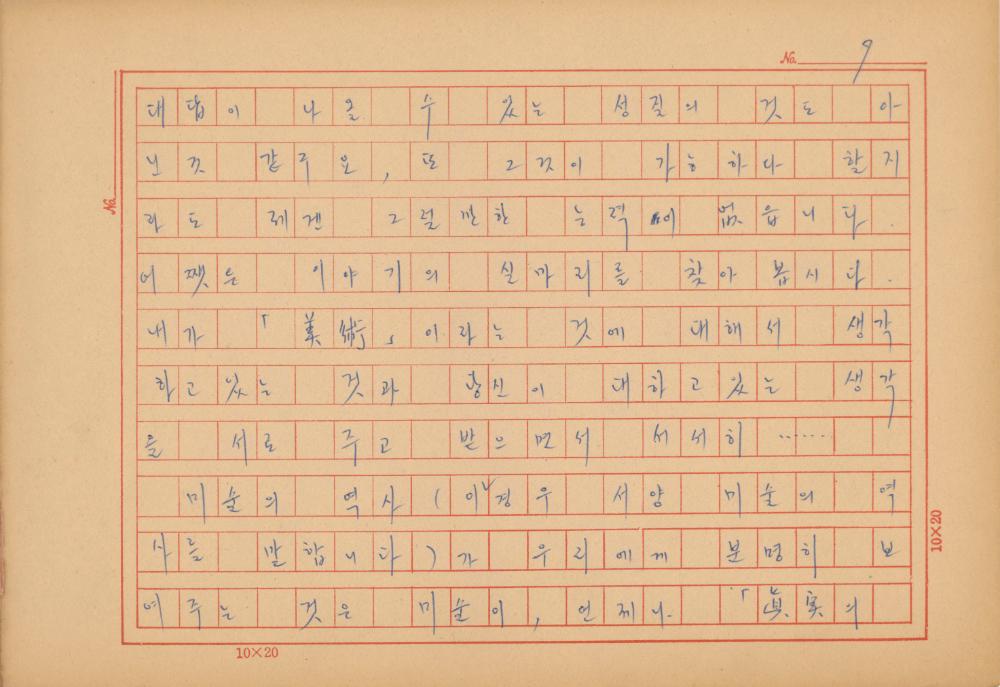 No. 9
No.
대답이 나올 수 있는 성질의 것도 아
닌것 같구요, 또 그것이 가능하다 할지
라도 제겐 그럴만한 능력이 없읍니다.
어쨌든 이야기의 실마리를 찾아 봅시다.
내가 「美術」이라는 것에 대해서 생각
하고 있는 것과 당신이 대하고 있는 생각
을 서로 주고 받으면서 서서히 ……
미술의 역사 (이 경우 서양 미술의 역
사를 말합니다) 가 우리에게 분명히 보
여주는 것은 미술이, 언제나 「眞実의
10×20
10×20